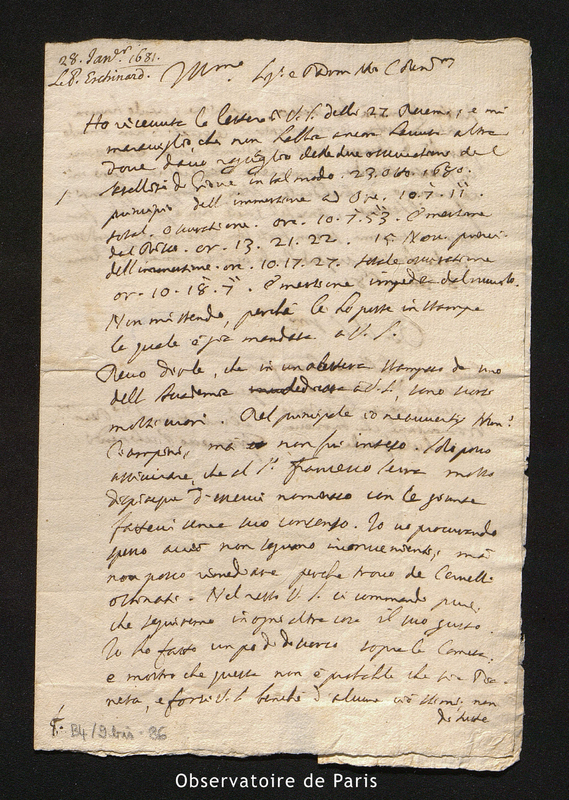 28. Janv.r 1681.
Le P. Eschinard.
Ho ricevuta la lettera di V. S. delli 27 e mi
maraviglio, che non habbia ancora havuta altra
dove davo ragguaglio delle due osservationi del
di Giove in tal modo. 23. Otto. 1680.
principio dell immersione ad Ore. 10. 7. 11.
total. oscuratione. ore. 10. 7. 53. Emersione
dal or. 13. 21. 22. 15 Nov. princi.
dell'immersione. ore. 10. 17. 27. totale oscuratione
or. 10. 18. 7. Emersione impedita dal nuvolo.
Non mi stendo, perché le ho poste in stampa
le quale è già mandata a V. S.
che in una lettera stampata da uno
dell Academia a V. S., sono
molti errori. Del principale io ne avvertij Mon.r
Ciampini, mà non fui inteso. Io posso
assicurare, che al S.r Francesco Serra molto
dispiacque d'esservi nominato con le
fattevi senza suo consenso. Io vo procurando
spesso acciò non seguano inconvenienti, mà
non posso rimediare perche trovo de Cervelli
ostinati. Nel resto V. S. ci commandi pure,
che seguiremo in ogni altra cosa il suo gusto.
Io ho fatto un po di discorso sopra la Cometa,
e mostro che questa non è probabile che sia Pia-
neta, e forse V. S. benche d'alcune non
di tutte
B4/9bis - 86
Observatoire de Paris